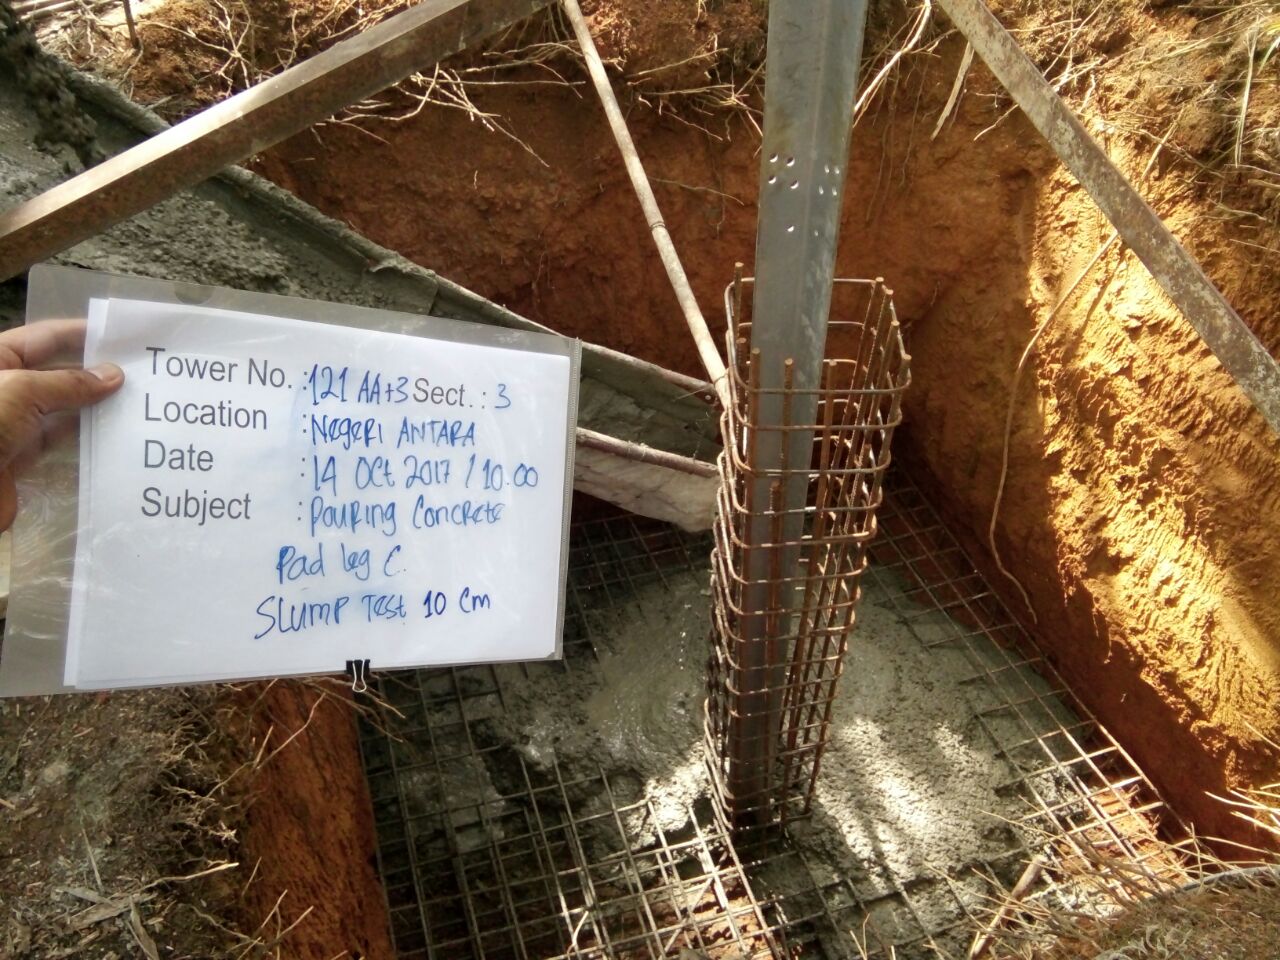 Tower No. : 121 AA+3 Sect. : 3
Location : NEGERI ANTARA
Date : 14 Oct 2017 / 10.00
Subject : Pouring Concrete
Pad leg C.
SLUMP TEST 10 cm